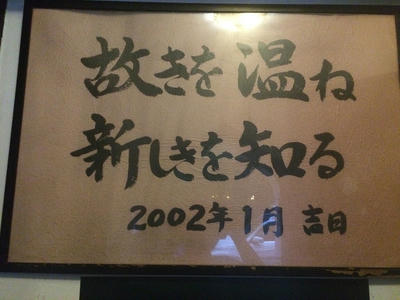 故きを温ね
新しきを知る
2002年1月 吉日